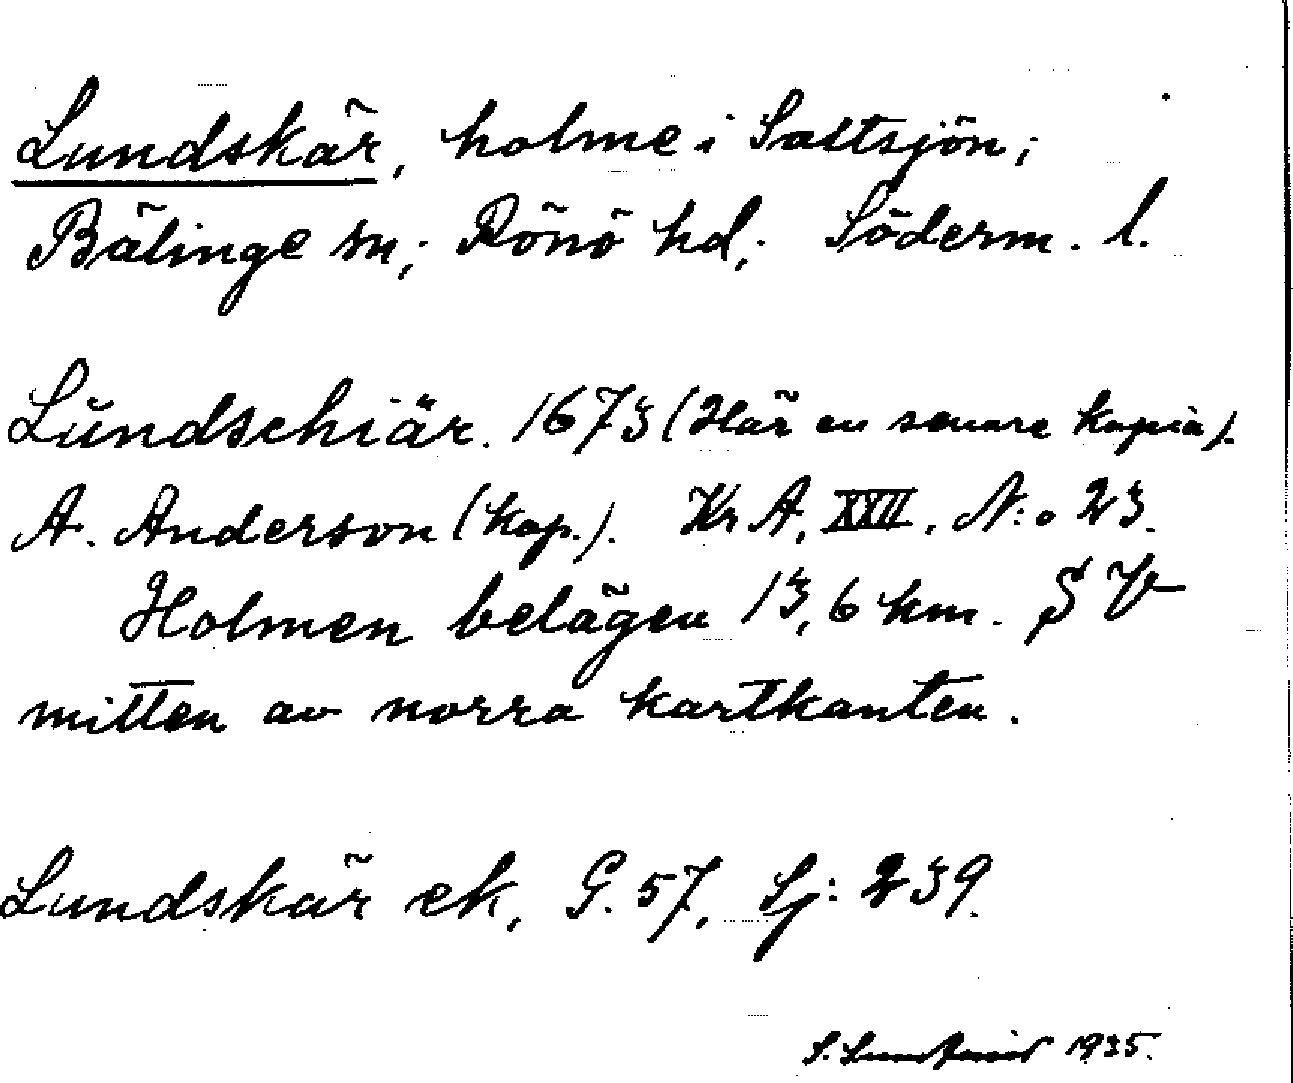 Lundskär, holme i Saltsjön;
Bälinge sn; Rönö hd; Söderm. l.
Lŭndschiär. 1673 (Här en senare kopia).
A. Anderson (kop.). Kr A, XXII, N:o 23.
Holmen belägen 13,6 km. SV
mitten av norra kartkanten.
Lundskär ek, G. 57, Sj: 239.
S. 1935.